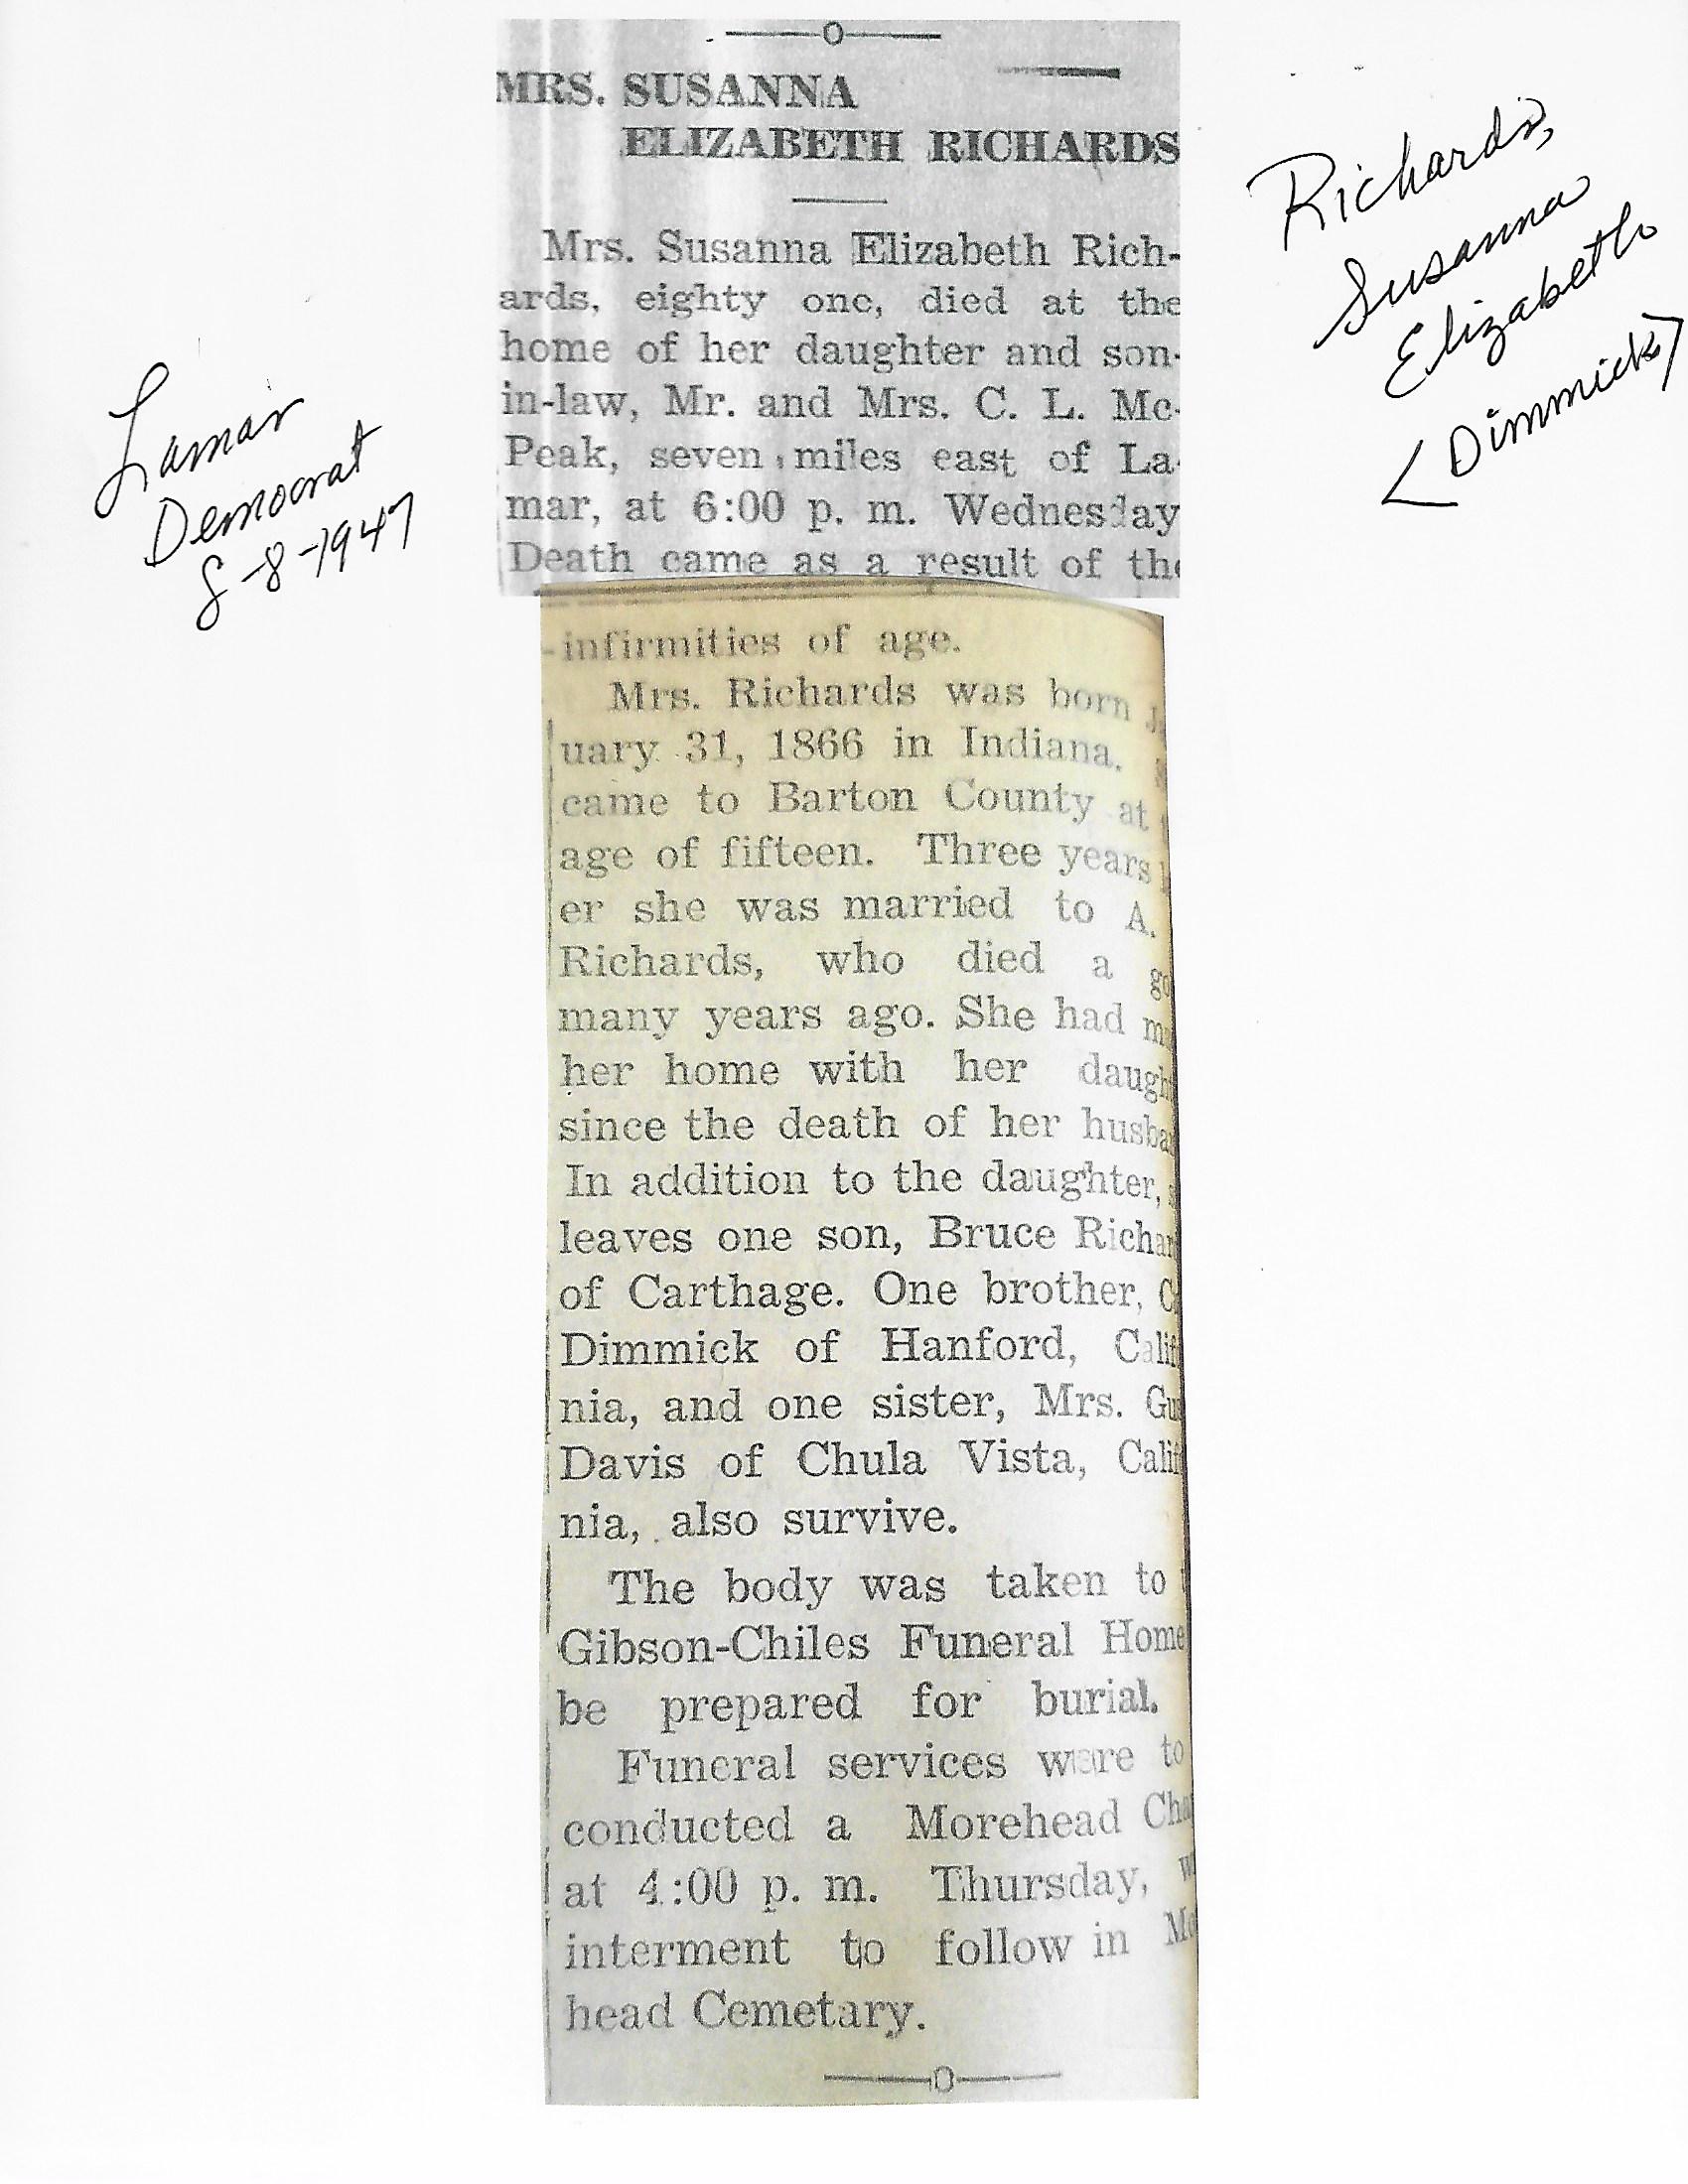 MRS. SUSANNA
ELIZABETH RICHARDS
Mrs. Susanna Elizabeth Rich-
ards, eighty one, died at the
home of her daughter and son-
in-law, Mr. and Mrs. C. L. Mc-
Peak, seven miles east of La-
mar, at 6:00 p. m. Wednesday
Death came as a result of the
infirmities of age.
Mrs. Richards was born
uary 31, 1866 in Indiana.
came to Barton County at
age of fifteen. Three years
er she was married to A.
Richards, who died a
many years ago. She had
her home with her
since the death of her
In addition to the daughter,
leaves one son, Bruce
of Carthage. One brother,
Dimmick of Hanford,
nia, and one sister, Mrs.
Davis of Chula Vista,
nia, also survive.
The body was taken to
Gibson-Chiles Funeral Home
be prepared for burial.
Funeral services were to
conducted a Morehead
at 4:00 p. m. Thursday,
interment to follow in
head Cemetary.
Lamar
Democrat
8-8-1947
Richards,
Susanna
Elizabeth
<Dimmick>